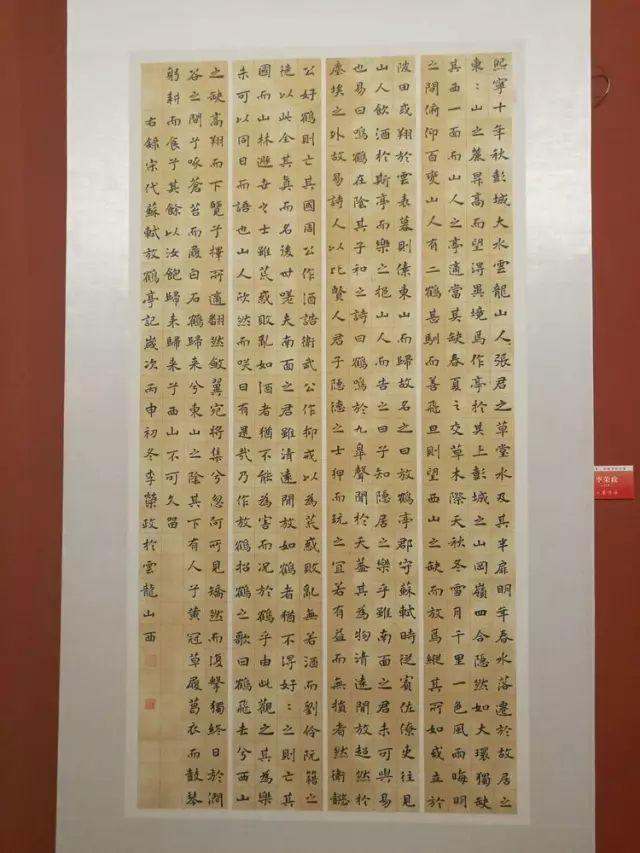 熙寧十年秋彭城大水雲龍山人張君之草堂水及其半扉明年春水落遷於故居之
東:山之麓昇高而望得異境焉作亭於其上彭城之山岡嶺四合隱然如大環獨缺
其西一面而山人之亭適當其缺春夏之交草木際天秋冬雪月千里一色風雨晦明
之間俯仰百變山人有二鶴甚馴而善飛旦則望西山之缺而放焉縱其所如或立於
陂田或翔於雲表暮則傃東山而歸故名之曰放鶴亭郡守蘇軾時從賓佐僚吏往見
山人飲酒於斯亭而樂之挹山人而告之曰子知隱居之樂乎雖南面之君未可與易
也易曰鳴鶴在陰其子和之詩曰鶴鳴於九皋聲聞於天蓋其為物清遠閒放超然於
塵埃之外故易詩人以比賢人君子隱德之士狎而玩之宜若有益而無損者然衛懿
公好鶴則亡其國周公作酒誥衛武公作抑或以為荒惑敗亂無若酒而劉伶阮籍之
徒以此全其真而名後世嗟夫南面之君雖清遠閒放如鶴者猶不得好:之則亡其
國而山林遯世之士雖荒惑敗亂如酒者猶不能為害而況於鶴乎由此觀之其為樂
未可以同日而語也山人欣然而咲曰有是哉乃作放鶴招鶴之歌曰鶴飛去兮西山
之缺高翔而下覽兮擇所適翻然斂翼宛將集兮忽何所見矯然而復擊獨終日於澗
谷之間兮啄蒼苔而履白石鶴歸來兮東山之陰其下有人兮黃冠草屨葛衣而鼓琴
躬耕而食兮其餘以汝飽歸來歸來兮西山不可久留
右錄宋代蘇軾放鶴亭記歲次丙申初冬李榮政於雲龍山西
李荣政